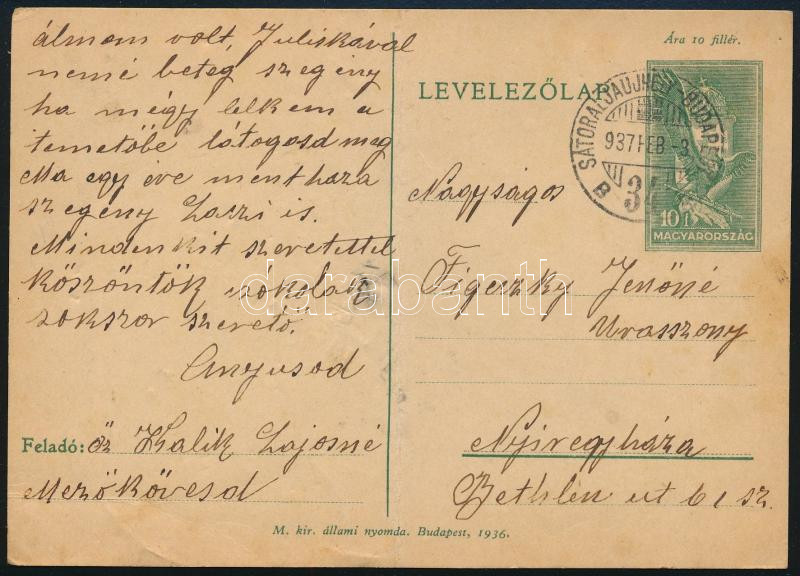 álmom volt, Juliskával
nemé beteg szegény
ha mégy lelkem a
temetőbe látogasd meg
Ma egy éve ment haza
szegény Laszi is.
Mindenkit szeretettel
köszöntök csókolak
sokszor szerető.
Anyusod
Feladó: öz Kalik Lajosné
Mezőkövesd
Ára 10 fillér.
LEVELEZŐLAP
SÁTORALJAUJHELY-BUDAPEST
937 FEB -3
B 34
10 f
MAGYARORSZÁG
Nagyságos
Figeczky Jenőné
Urasszony
Nyiregyháza
Bethlen ut 61 sz.
M. kir. állami nyomda. Budapest, 1936.
darabanth